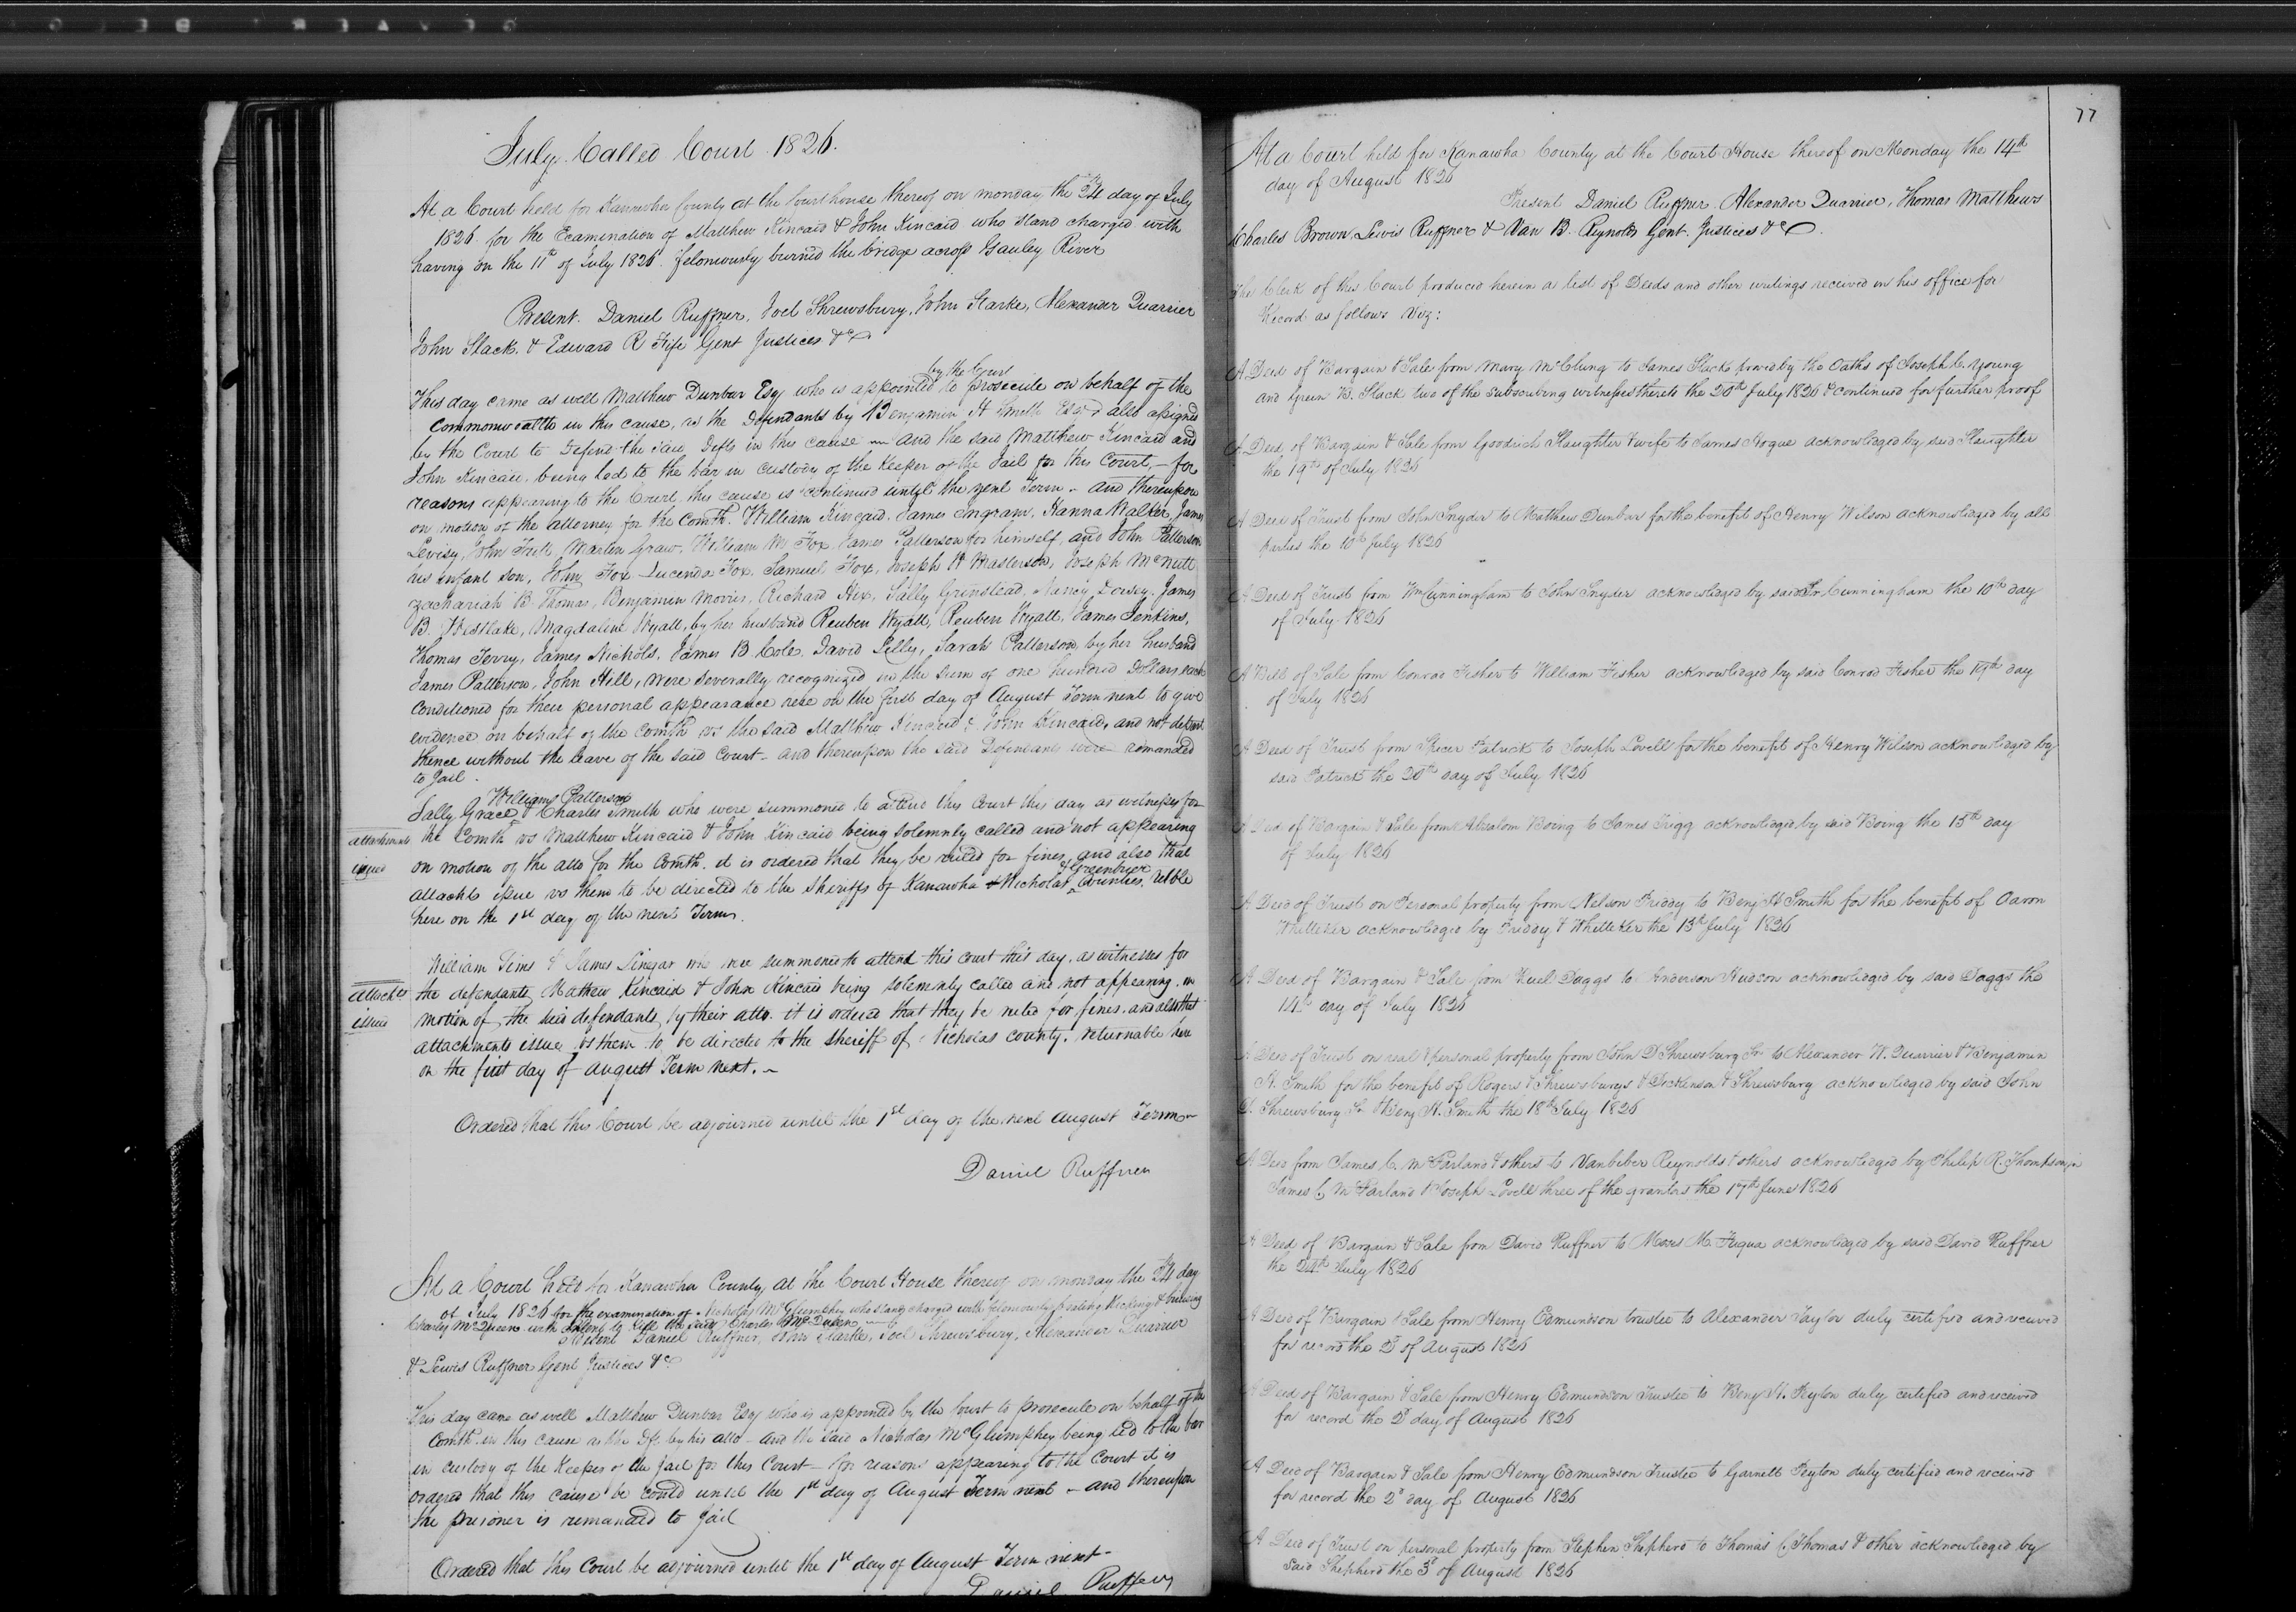 July Called Court 1826.
At a Court held for Kanawha County at the Courthouse thereof on monday the 24th day of July
1826. for the Examination of Matthew Kincaid & John Kincaid who stand charged with
having on the 11th of July 1826. feloniously burned the bridge across Gauley River
Present. Daniel Ruffner, Joel Shrewsbury, John Starke, Alexander Quarrier
John Slack. & Edward R Fife Gent Justices &c
by the Court
This day came as well Matthew Dunbar Esq who is appointed to prosecute on behalf of the
Commonwealth in this cause, as the Defendants by Benjamin H Smith Esqr also assigned
by the Court to defend the said Defts in this cause — and the said Matthew Kincaid and
John Kincaid, being led to the bar in custody of the Keeper of the Jail for this Court, — for
reasons appearing to the Court this cause is continued until the next Term - and thereupon
on motion of the attorney for the Comth. William Kincaid, James Ingram, Hanna Walker, James
Levisy, John Tritt, Marten Graw, William M Fox, James Patterson for himself, and John Patterson
his infant son, John Fox Lucenda Fox, Samuel Fox, Joseph H Masterson, Joseph McNutt
Zachariah B. Thomas, Benjamin Morris, Richard Hix, Sally Grinstead, Nancy Dorsey, James
B. Westlake, Magdaline Wyatt, by her husband Reuben Wyatt, Reuben Wyatt, James Jenkins,
Thomas Terry, James Nichols, James B. Cole, David Lilly, Sarah Patterson, by her husband
James Patterson, John Hill, were severally recognized in the sum of one hundred Dollars each
Conditioned for their personal appearance here on the first day of August Term next to give
evidence on behalf of the Comth vs the said Matthew Kincaid & John Kincaid, and not depart
thence without the leave of the said Court - and thereupon the said Defendants were remanded
to Jail.
William Patterson
Sally Grace & Charles Smith who were summoned to attend this Court this day as witnesses for
attachments the Comth vs Matthew Kincaid & John Kincaid being solemnly called and not appearing
issued on motion of the atto for the Comth. it is ordered that they be ruled for fines, and also that
& Greenbrier
attachts issue vs them to be directed to the sheriffs of Kanawha & Nicholas Counties, retble
here on the 1st day of the next Term.
William Sims & James Sinejar who were summoned to attend this court this day, as witnesses for
attachts the defendants Mathew Kincaid & John Kincaid being solemnly called and not appearing, on
issued motion of the said defendants by their atto. it is ordered that they be ruled for fines, and also that
attachments issue vs them to be directed to the sheriff of Nicholas county. returnable here
on the first day of august Term next. ~
Ordered that this Court be adjourned until the 1st day of the next August Term ~
Daniel Ruffner
At a Court held for Kanawha County at the Court House thereof on monday the 24th day
of July 1826 for the examination of Nicholas McGlumphey who stands charged with feloniously beating kicking & bruising
Charles McQueen with intent to kill the said Charles McQueen
Present Daniel Ruffner, John Starke, Joel Shrewsbury, Alexander Quarrier
& Lewis Ruffner Gent Justices &c
This day came as well Matthew Dunbar Esq who is appointed by the Court to prosecute on behalf of the
Comth in this cause as the Dft by his atto - and the said Nicholas McGlumphey being led to the bar
in custody of the Keeper of the Jail for this Court - for reasons appearing to the Court it is
ordered that this cause be contd until the 1st day of August Term next - and thereupon
the prisoner is remanded to Jail
Ordered that this Court be adjourned until the 1st day of August Term next -
Daniel Ruffner
77
At a Court held for Kanawha County at the Court House thereof on Monday the 14th
day of August 1826
Present Daniel Ruffner. Alexander Quarrier, Thomas Matthews
Charles Brown, Lewis Ruffner & Van B. Reynolds Gent. Justices &c
The Clerk of this Court produced herein a list of Deeds and other writings received in his office for
Record as follows Viz:
A Deed of Bargain & Sale from Mary McClung to James Slack proved by the Oaths of Joseph C. Young
and Green B. Slack two of the subscribing witnesses thereto the 20th July 1826 & continued for further proof
A Deed of Bargain & Sale from Goodrich Slaughter & wife to James Hogue acknowledged by said Slaughter
the 19th of July 1826
A Deed of Trust from John Snyder to Matthew Dunbar for the benefit of Henry Wilson acknowledged by all
parties the 10th July 1826
A Deed of Trust from Wm Cunningham to John Snyder acknowledged by said Cunningham the 10th day
of July 1826
A Bill of Sale from Conrod Fisher to William Fisher acknowledged by said Conrod Fisher the 19th day
of July 1826
A Deed of Trust from Spicer Patrick to Joseph Lovell for the benefit of Henry Wilson acknowledged by
said Patrick the 20th day of July 1826
A Deed of Bargain & Sale from Absalom Boing to James Trigg acknowledged by said Boing the 15th day
of July 1826
A Deed of Trust on Personal property from Nelson Priddy to Benj H Smith for the benefit of Aaron
Whitteker acknowledged by Priddy & Whitteker the 15th July 1826
A Deed of Bargain & Sale from Nuel Daggs to Anderson Hudson acknowledged by said Daggs the
14th day of July 1826
A Deed of Trust on real & personal property from John D Shrewsbury Sr to Alexander W. Quarrier & Benjamin
H. Smith for the benefit of Rogers & Shrewsburys & Dickinson & Shrewsbury acknowledged by said John
D. Shrewsbury Sr & Benj H. Smith the 18th July 1826
A Deed from James C. McFarland & others to Vanbiber Reynolds & others acknowledged by Philip R. Thompson jr
James C McFarland & Joseph Lovell three of the grantors the 17th June 1826
A Deed of Bargain & Sale from David Ruffner to Moses M. Fuqua acknowledged by said David Ruffner
the 24th July 1826
A Deed of Bargain & Sale from Henry Edmundson trustee to Alexander Taylor duly certified and received
for record the 2d of August 1826
A Deed of Bargain & Sale from Henry Edmundson Trustee to Benj H. Peyton duly certified and received
for record the 2d day of August 1826
A Deed of Bargain & Sale from Henry Edmundson Trustee to Garnett Peyton duly certified and received
for record the 2d day of August 1826
A Deed of Trust on personal property from Stephen Shepherd to Thomas C. Thomas & other acknowledged by
Said Shepherd the 3d of August 1826